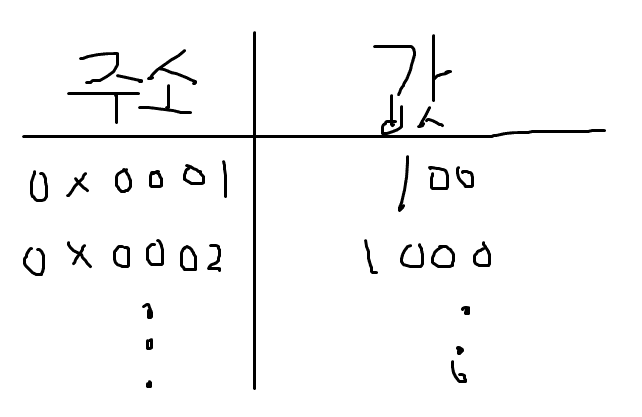 주소 값
0x0001 100
0x0002 1000
⋮ ⋮